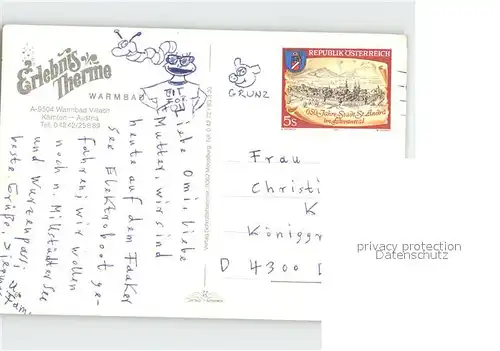 Erlebnis
Therme
WARMBAD
A-9504 Warmbad Villach
Kärnten - Austria
Tel. 04242/25689
FIT
FOR
FUN
GRUNZ
REPUBLIK ÖSTERREICH
650 Jahre Stadt St. Andrä
im Lavanttal
5s
Liebe Omi, liebe
Mutter, wir sind
heute auf dem Faaker
See Elektroboot ge-
fahren; wir wollen
noch n. Millstätter See
und Wurzenpass;
beste Grüße,
Frau
Christi
K
Königgr
D 4300
privacy protection
Datenschutz